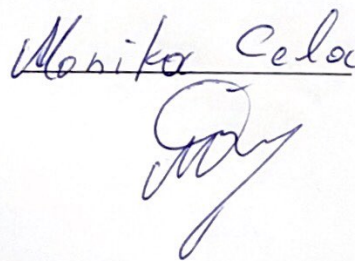 Monika Cela